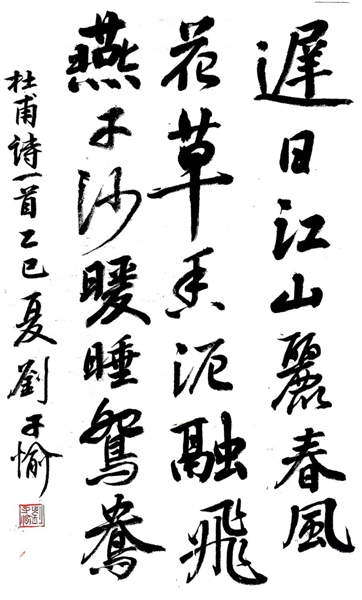 遲日江山麗春風
花草香泥融飛
燕子沙暖睡鴛鴦
杜甫詩一首乙巳夏劉子愉